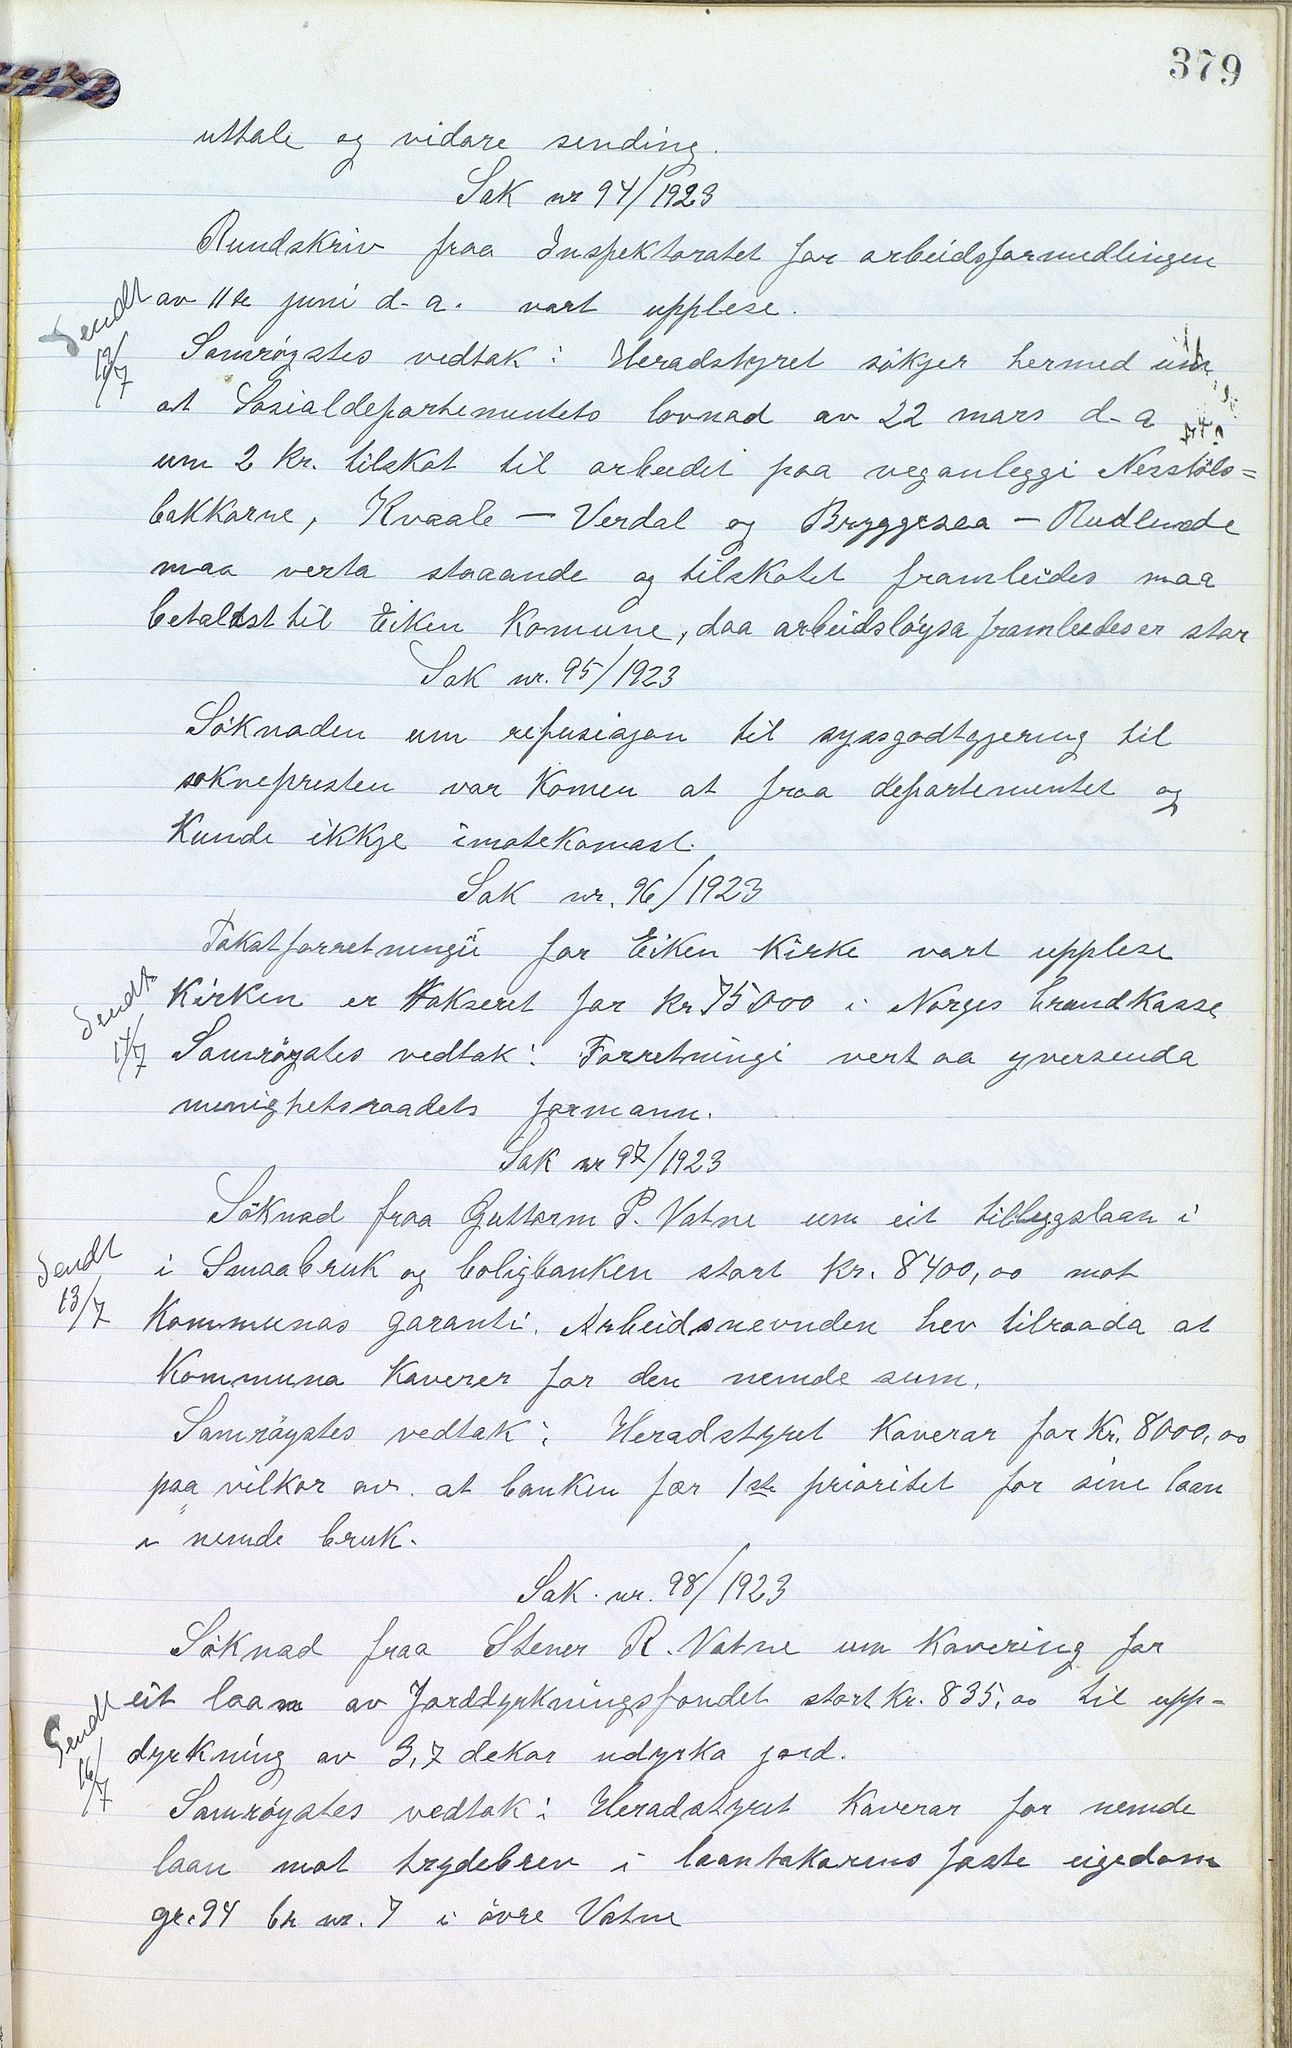 379
uttale og vidare sending.
Sak nr 94/1923
Rundskriv fraa Inspektoratet for arbeidsformidlingen
Sendt 13/7
av 11te juni d-a. vart upplese.
Samrøystes vedtak: Heradstyret søkjer hermed um
at Sosialdepartementets lovnad av 22 mars d-a
um 2 kr. tilskot til arbeidet paa veganleggi Nesstøls=
bakkarne, Kvaale - Verdal og Bryggesaa - Rudlende
maa verta staaande og tilskotet framleides maa
betalast til Eiken Komune, daa arbeidsløysa framleides er stor
Sak nr. 95/1923
Søknaden um refusiajon til syssgodtgjering til
soknepresten var komen at fraa departementet og
kunde ikkje imøtekomast.
Sak nr. 96/1923
Takstforretningii for Eiken Kirke vart upplese
Sendt 17/7
Kirken er takseret for kr 75000 i Norges brandkasse
Samrøystes vedtak: Forretningi vert aa yversenda
menighetsraadets formann.
Sak nr 97/1923
Søknad fraa Guttorm P. Vatne um eit tilleggslaan i
Sendt 13/7
i Smaabruk og boligbanken stort kr. 8400,00 mot
Kommunas garanti. Arbeidsnevnden hev tilraada at
Kommuna kaverer for den nemde sum.
Samrøystes vedtak: Heradstyret kaverar for kr. 8000,00
paa vilkor av. at banken fær 1ste prioritet for sine laan
i nemde bruk.
Sak. nr. 98/1923
Søknad fraa Stener R. Vatne um kavering for
Sendt 16/7
eit laan av Jorddyrkningsfondet stort kr. 835,00 til upp-
dyrkning av 3,7 dekar udyrka jord.
Samrøystes vedtak: Heradstyret kaverar for nemde
laan mot trydebrev i laantakarens faste eigedom
gr. 94 br nr. 7 i øvre Vatne